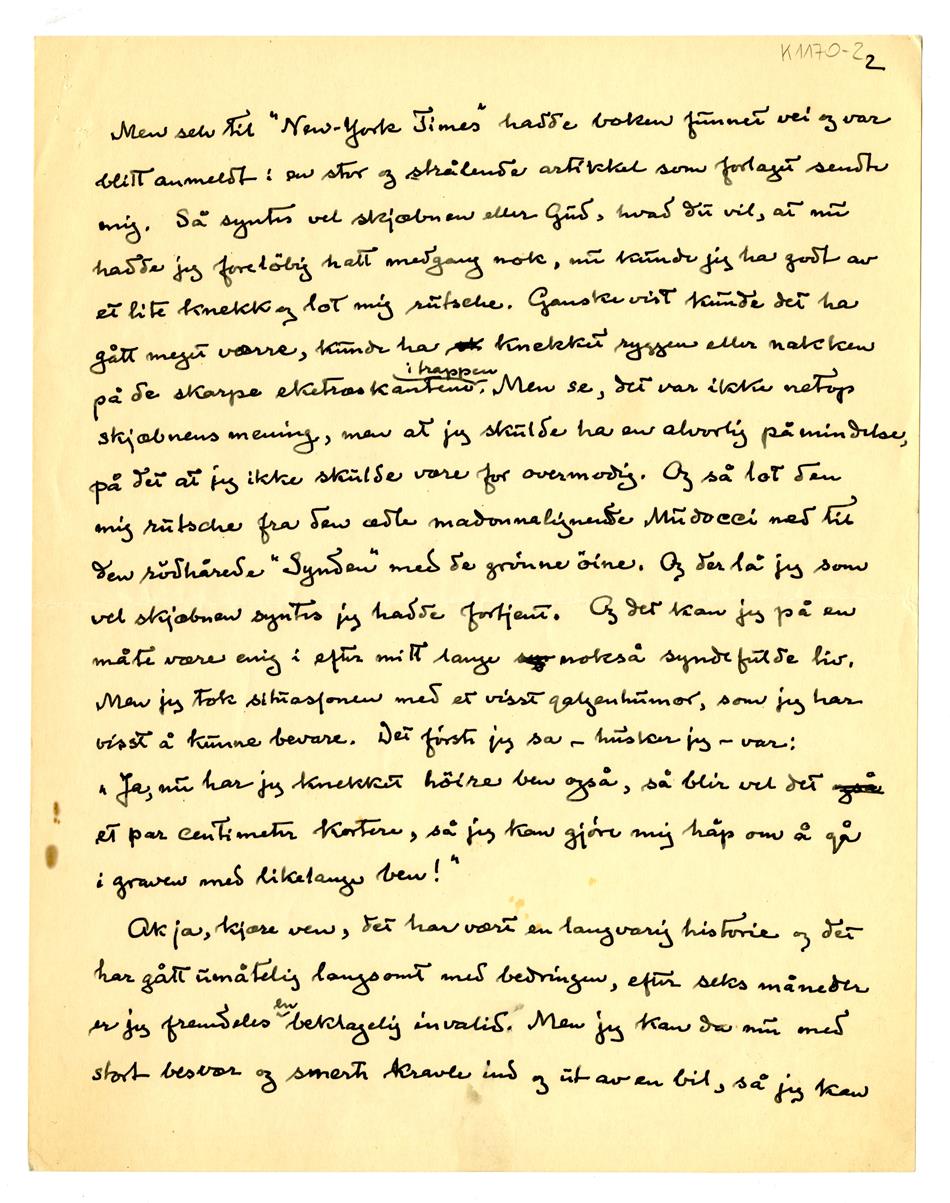 K1170-2
2
Men selv til "New-York Times" hadde boken funnet vei og var
blitt anmeldt i en stor og strålende artikkel som forlaget sendte
mig. Så syntes vel skjæbnen eller Gud, hvad du vil, at nu
hadde jeg foreløbig hatt medgang nok, nu kunde jeg ha godt av
et lite knekk og lot mig rutsche. Ganske vist kunde det ha
gått meget værre, kunde ha knekket ryggen eller nakken
i trappen
på de skarpe eketræskantene. Men se, det var ikke netop
skjæbnens mening, men at jeg skulde ha en alvorlig påmindelse,
på det at jeg ikke skulde være for overmodig. Og så lot den
mig rutsche fra den ædle madonnalignende Mudocci ned til
den rödhårede "Synden" med de grönne öine. Og der lå jeg som
vel skjæbnen syntes jeg hadde fortjent. Og det kan jeg på en
måte være enig i efter mitt lange nokså syndefulde liv.
Men jeg tok situasjonen med et visst galgenhumor, som jeg har
visst å kunne bevare. Det förste jeg sa – husker jeg – var:
"Ja, nu har jeg knekket höire ben også, så blir vel det også
et par centimeter kortere, så jeg kan gjöre mig håp om å gå
i graven med likelange ben!"
Ak ja, kjære ven, det har vært en langvarig historie og det
har gått umåtelig langsomt med bedringen, efter seks måneder
er jeg fremdeles en beklagelig invalid. Men jeg kan da nu med
stort besvær og smerte kravle ind og ut av en bil, så jeg kan